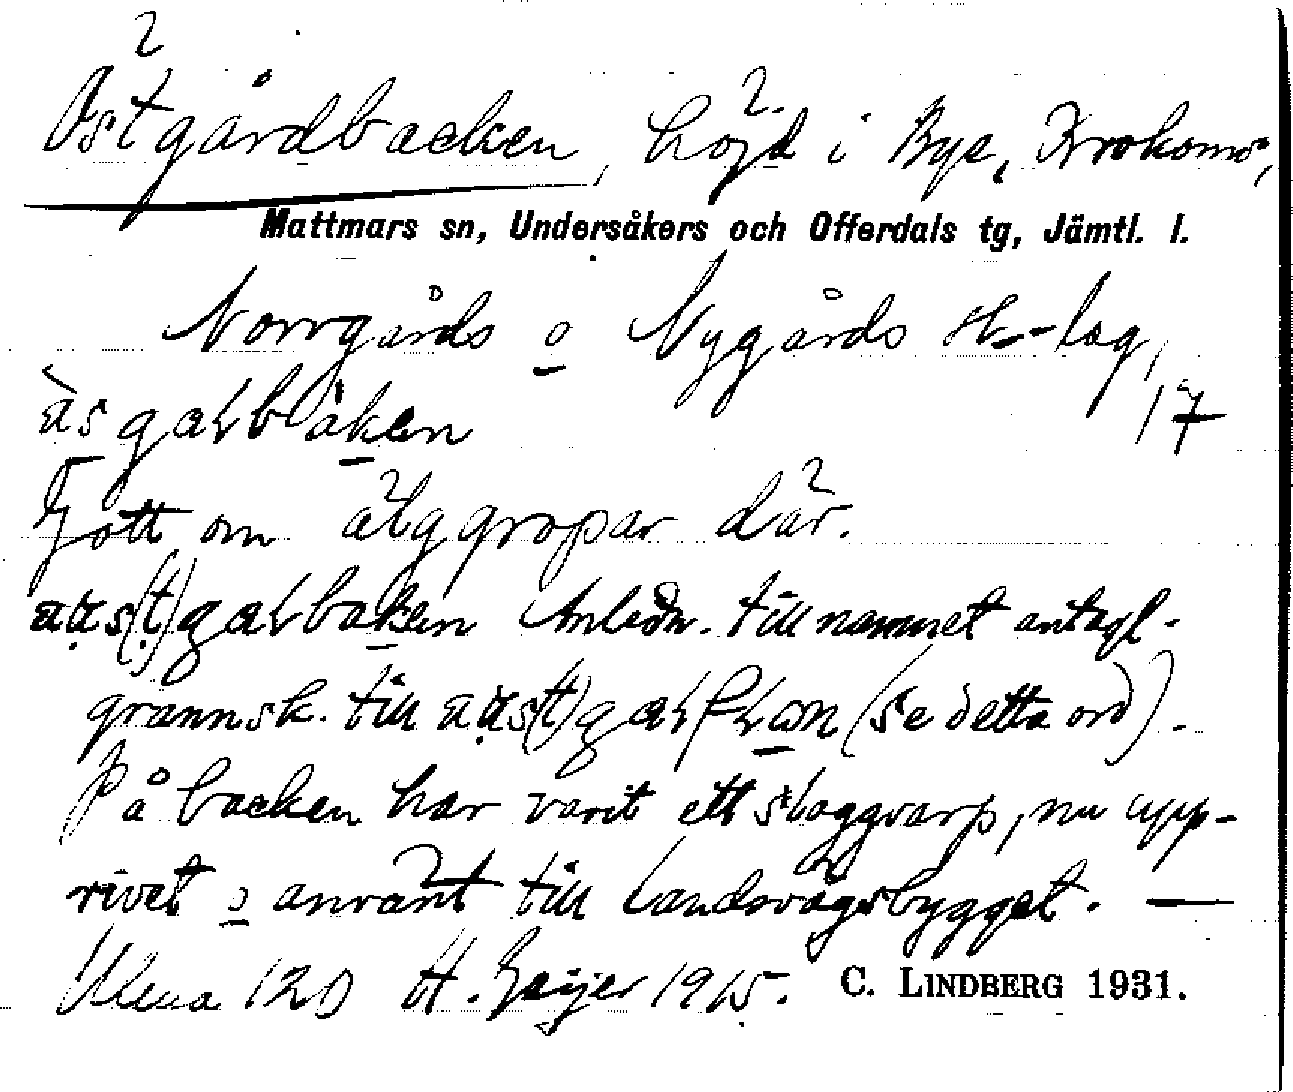 Östgårdbacken, höjd i Bye, Krokoms,
Mattmars sn, Undersåkers och Offerdals tg, Jämtl. l.
Norrgårds o Nygårds sk-lag,
17
Gott om älggropar där.
Anledn. till namnet antagl.
grannsk. till (se detta ord).
På backen har varit ett slaggvarp, nu upp-
rivet o använt till landsvägsbygget. —
120 H. Geijer 1915. C. LINDBERG 1931.